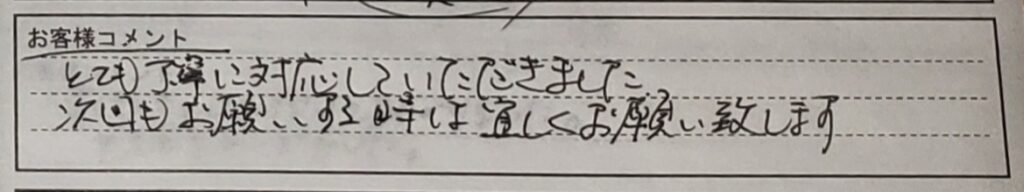 お客様コメント
とても丁寧に対応していただきました
次回もお願いする時は宜しくお願い致します